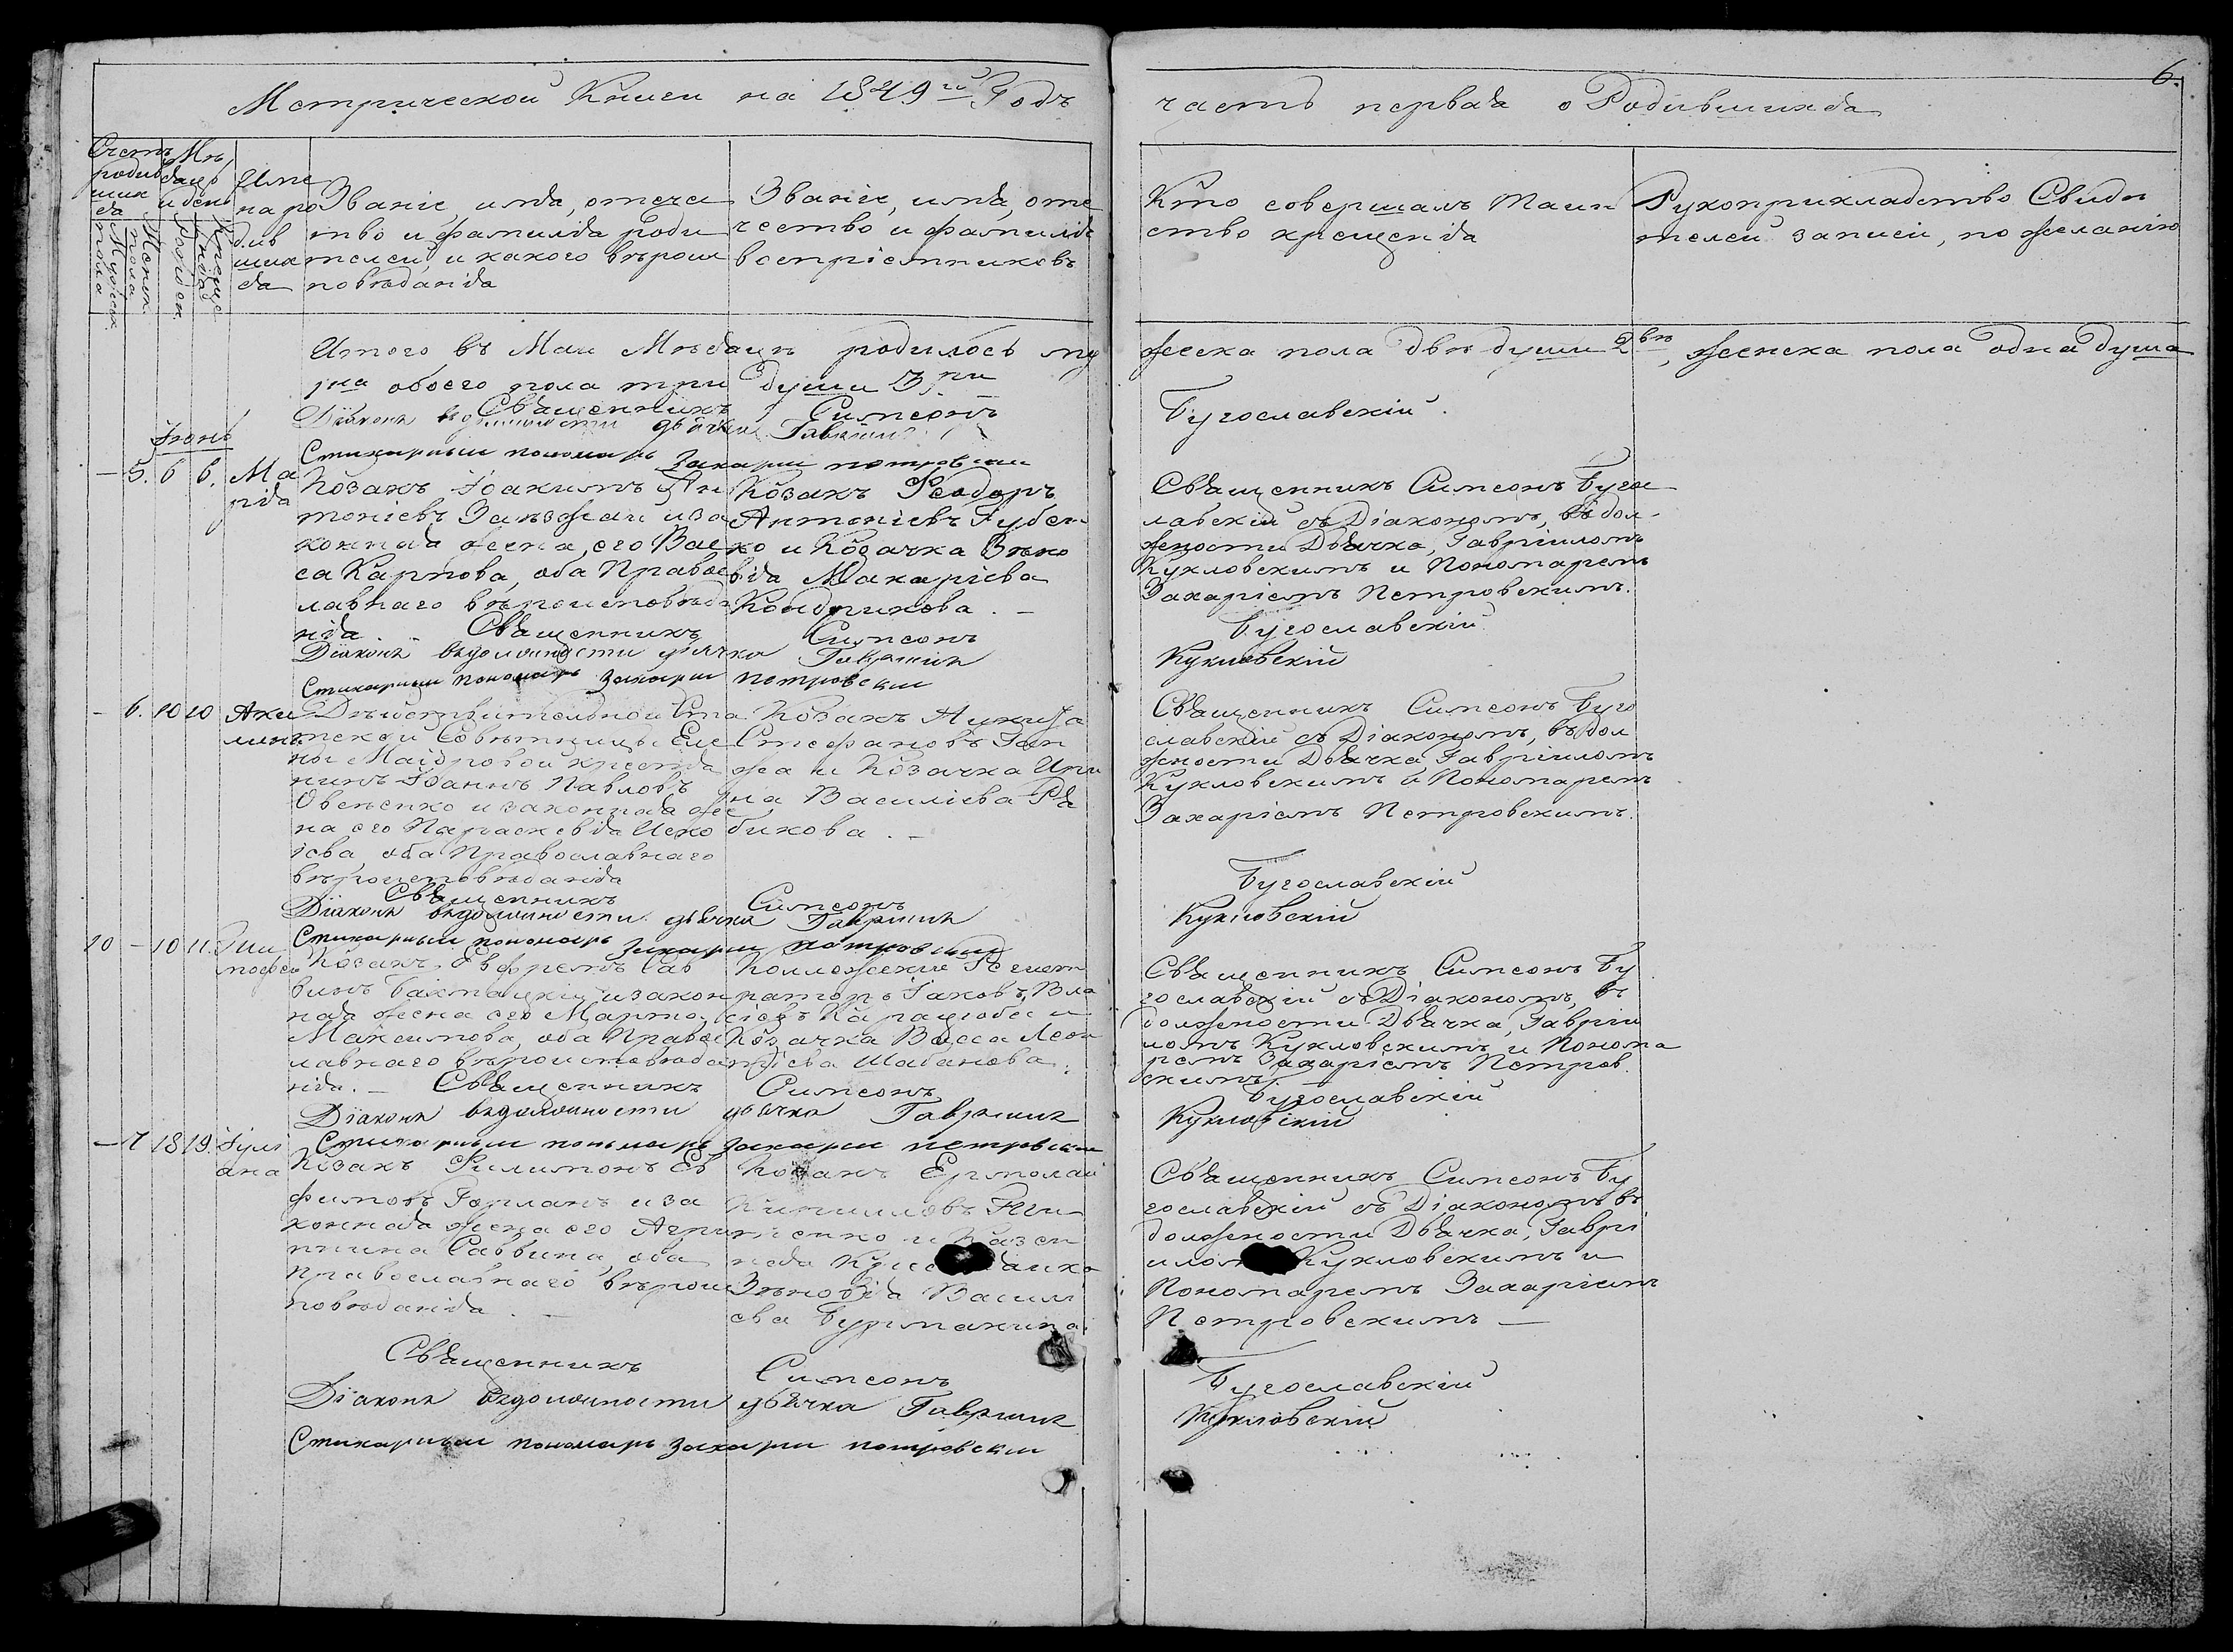 6.
Метрической Книги на 1849й Годъ
часть первая о Родившихся
Счетъ родив
шихся
Мужеск. пола
Женск. пола
Мѣсяцъ и день
рожден.
крещенія
Имена ро
див
ших
ся
Званіе, имя, отече
ство и фамилія роди
телей, и какого вѣроис
повѣданія
Званіе, имя, оте
чество и фамилія
воспріемниковъ
Кто совершалъ Таин
ство крещенія
Рукоприкладство Свидѣ
телей записи, по желанію
Итого въ Маи Мѣсяцѣ родилось му
жеска пола двѣ души 2вѣ, женска пола одна душа
1на обоего пола три души 3ри
Священникъ Симеонъ
Бугославскій
Діаконъ въ должности дьячка Гавріилъ
Стихарный пономарь Захарій Петровскій
Іюнь
— 5. 6 6. Ма
рія
Козакъ Іоакимъ Ан
тоніевъ и за
конная жена его Вас
са Карпова, оба Правос
лавнаго вѣроисповѣда
нія.
Козакъ Ѳеодоръ
Антоніевъ Губен
ко и Козачка Зѣно
вія Макаріева
Кондрикова. —
Священникъ Симеонъ Бугос
лавскій съ Діакономъ, въ дол-
жности Дьячка, Гавріиломъ
Кукловскимъ и Пономаремъ
Захаріемъ Петровскимъ.
Священникъ Симеонъ
Бугославскій
Діаконъ въ должности дьячка Гавріилъ
Кукловскій
Стихарный пономарь Захарій Петровскій
— 6. 10 10 Аки
лина
Дѣйствительной Ста
тской Совѣтницы Еле
ны Маіоровой крестья
нинъ Іоаннъ Павловъ
Овсѣенко и законная же
на его Параскевія Иско
іева, оба Православнаго
вѣроисповѣданія
Козакъ Никита
Стефановъ Ган
жа и Козачка Ири
на Василіева Ря
бикова. —
Священникъ Симеонъ Буго
славскій съ Діакономъ, въ дол
жности Дьячка, Гавріиломъ
Кукловскимъ и Пономаремъ
Захаріемъ Петровскимъ.
Священникъ Симеонъ
Бугославскій
Діаконъ въ должности дьячка Гавріилъ
Кукловскій
Стихарный пономарь Захарій Петровскій
10 — 10 11. Тим
оѳей
Козакъ Евфремъ Сав
винъ и закон
ная жена его Марѳа
Максимова, оба Правос
лавнаго вѣроисповѣда
нія. —
Коллежскій Регист
раторъ Іаковъ Вла
сіевъ и
Козачка Васса Леон
тіева Шабанова.
Священникъ Симеонъ Бу
гославскій съ Діакономъ, въ
должности Дьячка, Гавріи
ломъ Кукловскимъ и Понома
ремъ Захаріемъ Петров
скимъ. —
Священникъ Симеонъ
Бугославскій
Діаконъ въ должности дьячка Гавріилъ
Кукловскій
Стихарный пономарь Захарій Петровскій
— 7 18 19. Іулі
ана
Козакъ Филимонъ Ев
фимовъ Горланъ и за
конная жена его Агри
ппина Саввина, оба
Православнаго вѣроис
повѣданія. —
Козакъ Ермолай
Кирилловъ
и Казен
ная
Зѣновія Васил
ева Бурмакина.
Священникъ Симеонъ Бу
гославскій съ Діакономъ въ
должности Дьячка, Гаврі
иломъ Кукловскимъ и
Пономаремъ Захаріемъ
Петровскимъ —
Священникъ Симеонъ
Бугославскій
Діаконъ въ должности дьячка Гавріилъ
Кукловскій
Стихарный пономарь Захарій Петровскій